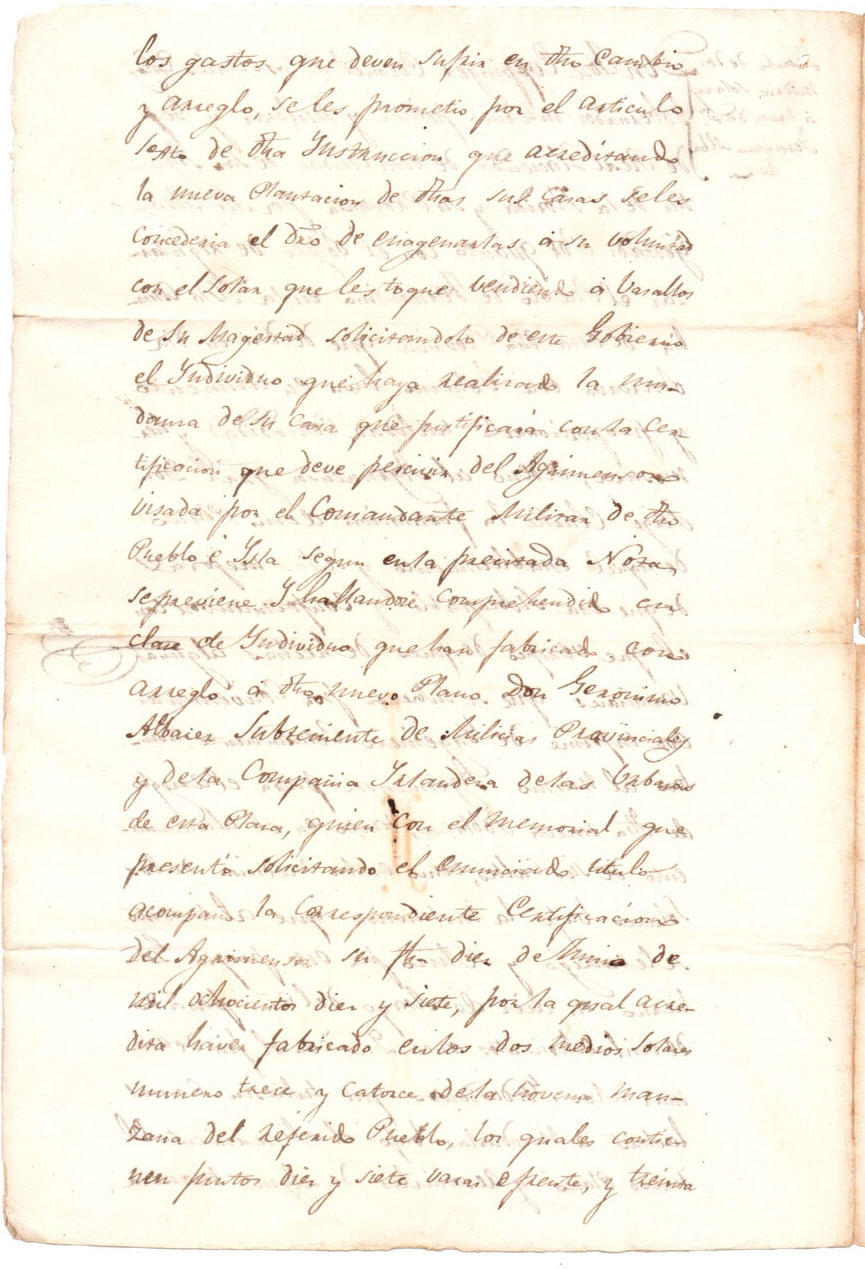 los gastos que deven sufrir en dho cambio
y arreglo, se les prometio por el articulo
sexto de dha Instruccion que acreditando
la nueva Plantacion de dhas sus Casas se les
concederia el dro de enagenarlas á su voluntad
con el Solar que les toque vendiendo á Vasallos
de Su Magestad solicitandolo de este Gobierno
el Individuo que haya realizado la mu-
danza de su casa que justificará con la Cer-
tificacion que deve percivir del Agrimensor
visada por el Comandante Militar de dho
Pueblo é Isla segun en la precitada Nota
se previene Y hallandose comprehendido en
clase de Individuo que han fabricado con
arreglo á dho nuevo Plano Don Geronimo
Subteniente de Milicias Provinciales
y de la Compañia de las Urbanas
de esta Plaza, quien con el memorial que
presentó solicitando el enunciado titulo
acompañó la Correspondiente Certificacion
del Agrimensor su fha diez de Junio de
mil ochocientos diez y siete, por la qual acre-
dita haver fabricado en los dos medios Solares
numero trece y catorce de la novena man-
zana del referido Pueblo, los quales contie-
nen juntos diez y siete varas de frente, y treinta